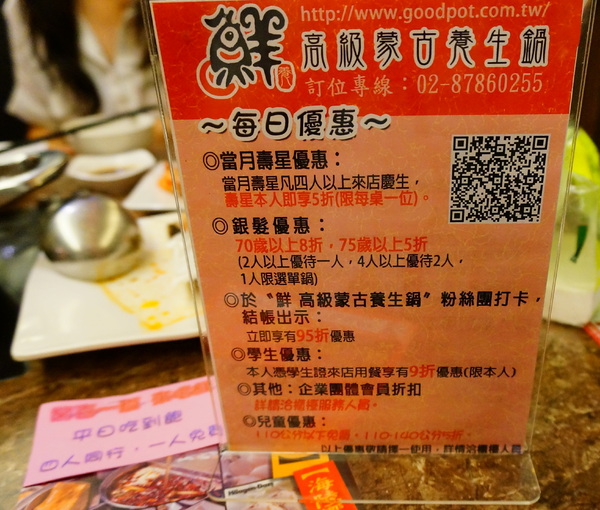 http://www.goodpot.com.tw/
鮮 高級蒙古養生鍋
訂位專線：02-87860255
～每日優惠～
◎當月壽星優惠：
當月壽星凡四人以上來店慶生，
壽星本人即享5折(限每桌一位)。
◎銀髮優惠：
70歲以上8折，75歲以上5折
(2人以上優待一人，4人以上優待2人，
1人限選單鍋)
◎於〝鮮 高級蒙古養生鍋〞粉絲團打卡，
結帳出示：
立即享有95折優惠
◎學生優惠：
本人憑學生證來店用餐享有9折優惠(限本人)
◎其他：企業團體會員折扣
詳情洽櫃檯服務人員。
◎兒童優惠：
110公分以下免費，110-140公分5折。
以上優惠敬請擇一使用，詳情洽櫃檯人員
平日吃到飽
四人同行，一人免費
Häagen-Dazs